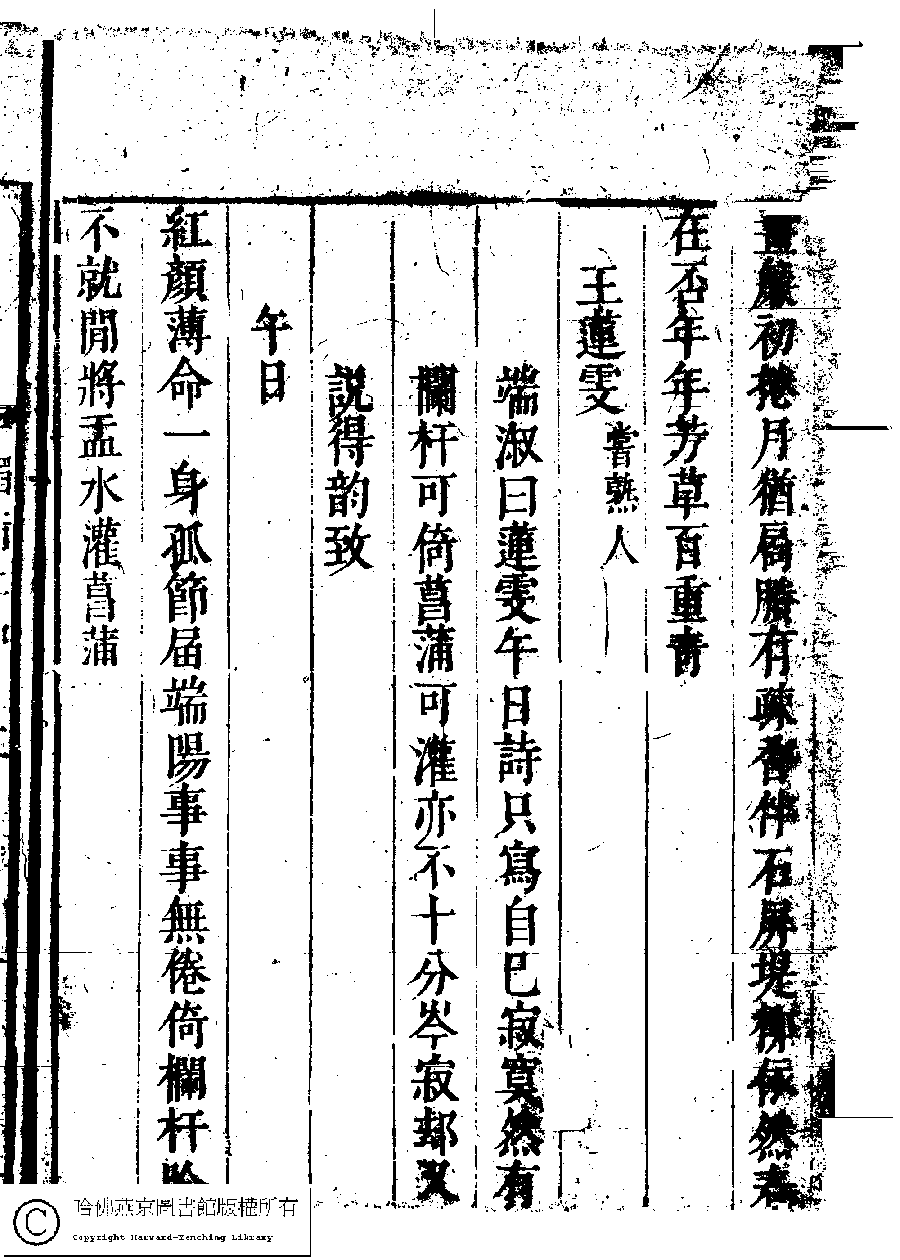 畫簾初捲月猶扃賸有疎香伴石屏堤柳依然春
在否年年芳草百重青
王蓮雯 嘗熟人
端淑曰蓮雯午日詩只寫自巳寂寞然有
欄杆可倚菖蒲可灌亦不十分岑寂却又
說得韵致
午日
紅顏薄命一身孤節屆端陽事事無倦倚欄杆吟
不就閒將盂水灌菖蒲
哈佛燕京圖書館版權所有
Copyright Harvard-Yenching Library